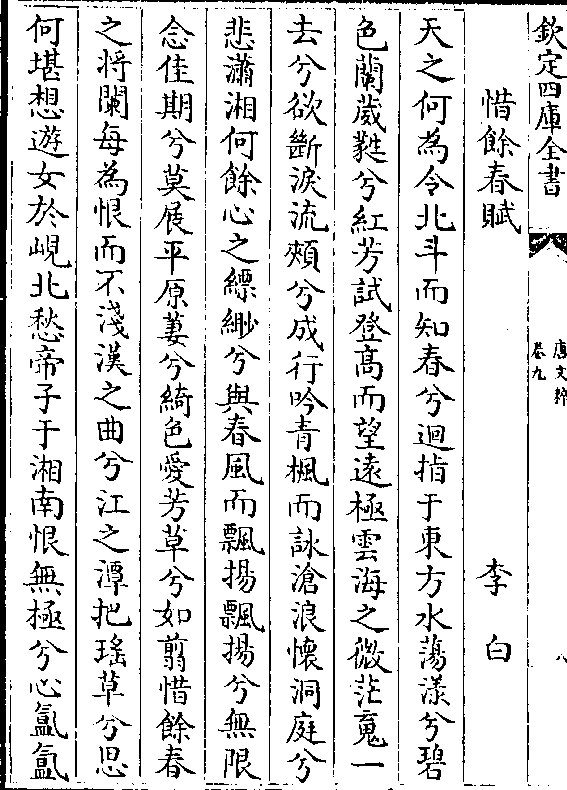 欽定四庫全書
唐文粹
卷九
八
惜餘春賦
李白
天之何為令北斗而知春兮迴指于東方水蕩漾兮碧
色蘭葳蕤兮紅芳試登髙而望遠極雲海之微茫䰟一
去兮欲斷淚流頰兮成行吟青楓而詠滄浪懷洞庭兮
悲瀟湘何餘心之縹緲兮與春風而飄揚飄揚兮無限
念佳期兮莫展平原萋兮綺色愛芳草兮如翦惜餘春
之将闌每為恨而不淺漢之曲兮江之潭把瑶草兮思
何堪想遊女於峴北愁帝子于湘南恨無極兮心氳氳